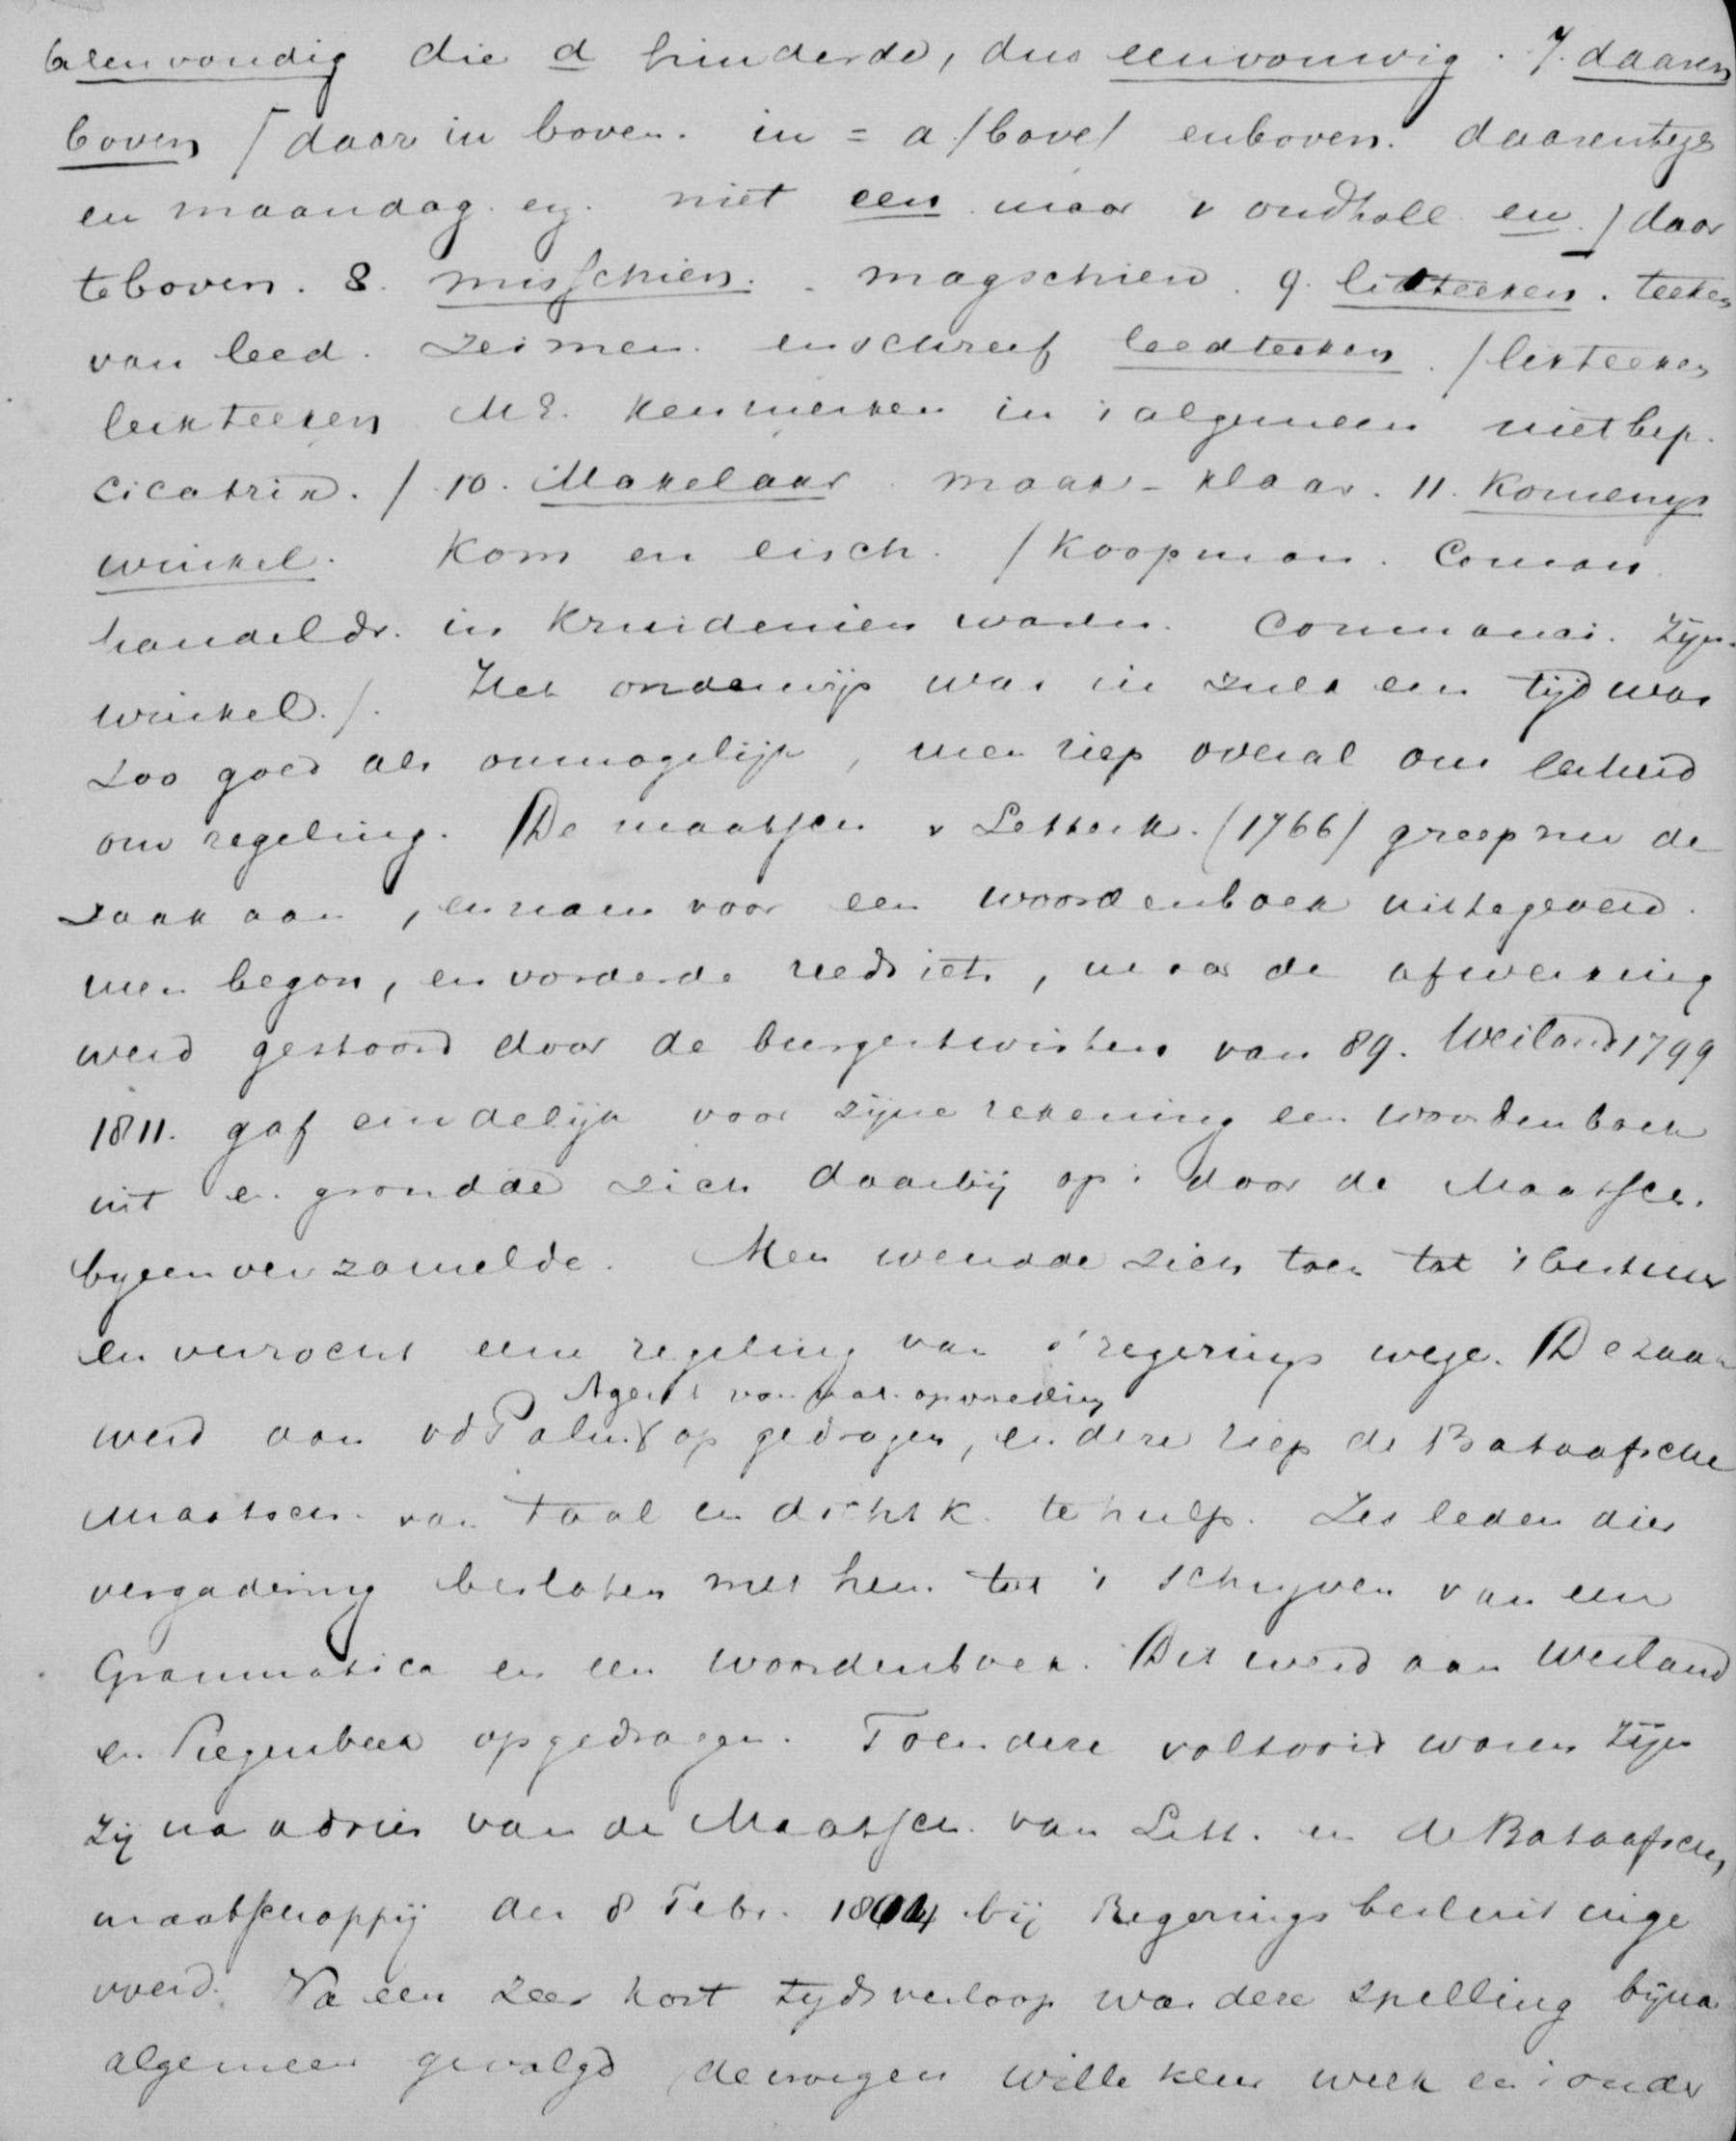 eenvoudig die d hinderde, dus eenvouwig. 7. daaren
boven / daar in boven. in = a /bove/ enboven. daarentege
en maandag. eig. niet een maar v oudholl. en. / daar
teboven. 8. misschien. magschien. 9. lidteeken. teeken
van leed. zei men. en schreef leedteeken. / likteeken
leekteeken ME. kenmerken in 't algemeen niet bep.
cicatrix. / 10. Makelaar. maak-klaar. 11. Komenys
winkel. Kom en eisch. / Koopman. Coman
handeldr. in kruidenierswaren. Commans. zijn
winkel. /. Het onderwijs was in zulk een tijd was
zoo goed als onmogelijk, men riep overal om eenheid
om regeling. De maatsch v Letterk. (1766) greep nu de
zaak aan, en nam voor een woordenboek uittegeven.
men begon, en vorderde reeds iets, maar de afwerking
werd gestoord door de burgertwisten van 89. Weiland 1799
1811. gaf eindelijk voor zijne rekening een woordenboek
uit en grondde zich daarbij op 't door de Maatsch.
byeenverzamelde. Men wendde zich toen tot 't bestuur
en verzocht eene regeling van 's regerings wege. De zaak
Agent van nat. opvoeding
werd aan vd Palm opgedragen, en deze riep de Bataafsche
Maatsch. van Taal en dichtk. te hulp. Zes leden dier
vergadering besloten met hem tot 't schrijven van een
Grammatica en een woordenboek. Dit werd aan Weiland
en Siegenbeek opgedragen. Toen deze voltooid waren zijn
zij na advies van de Maatsch. van Lett. en de Bataafsche
maatschappij den 8 Febr. 1804 bij Regeringsbesluit inge
voerd. Na een zeer kort tydsverloop was deze spelling bijna
algemeen gevolgd de vroegere willekeur week en 't onder